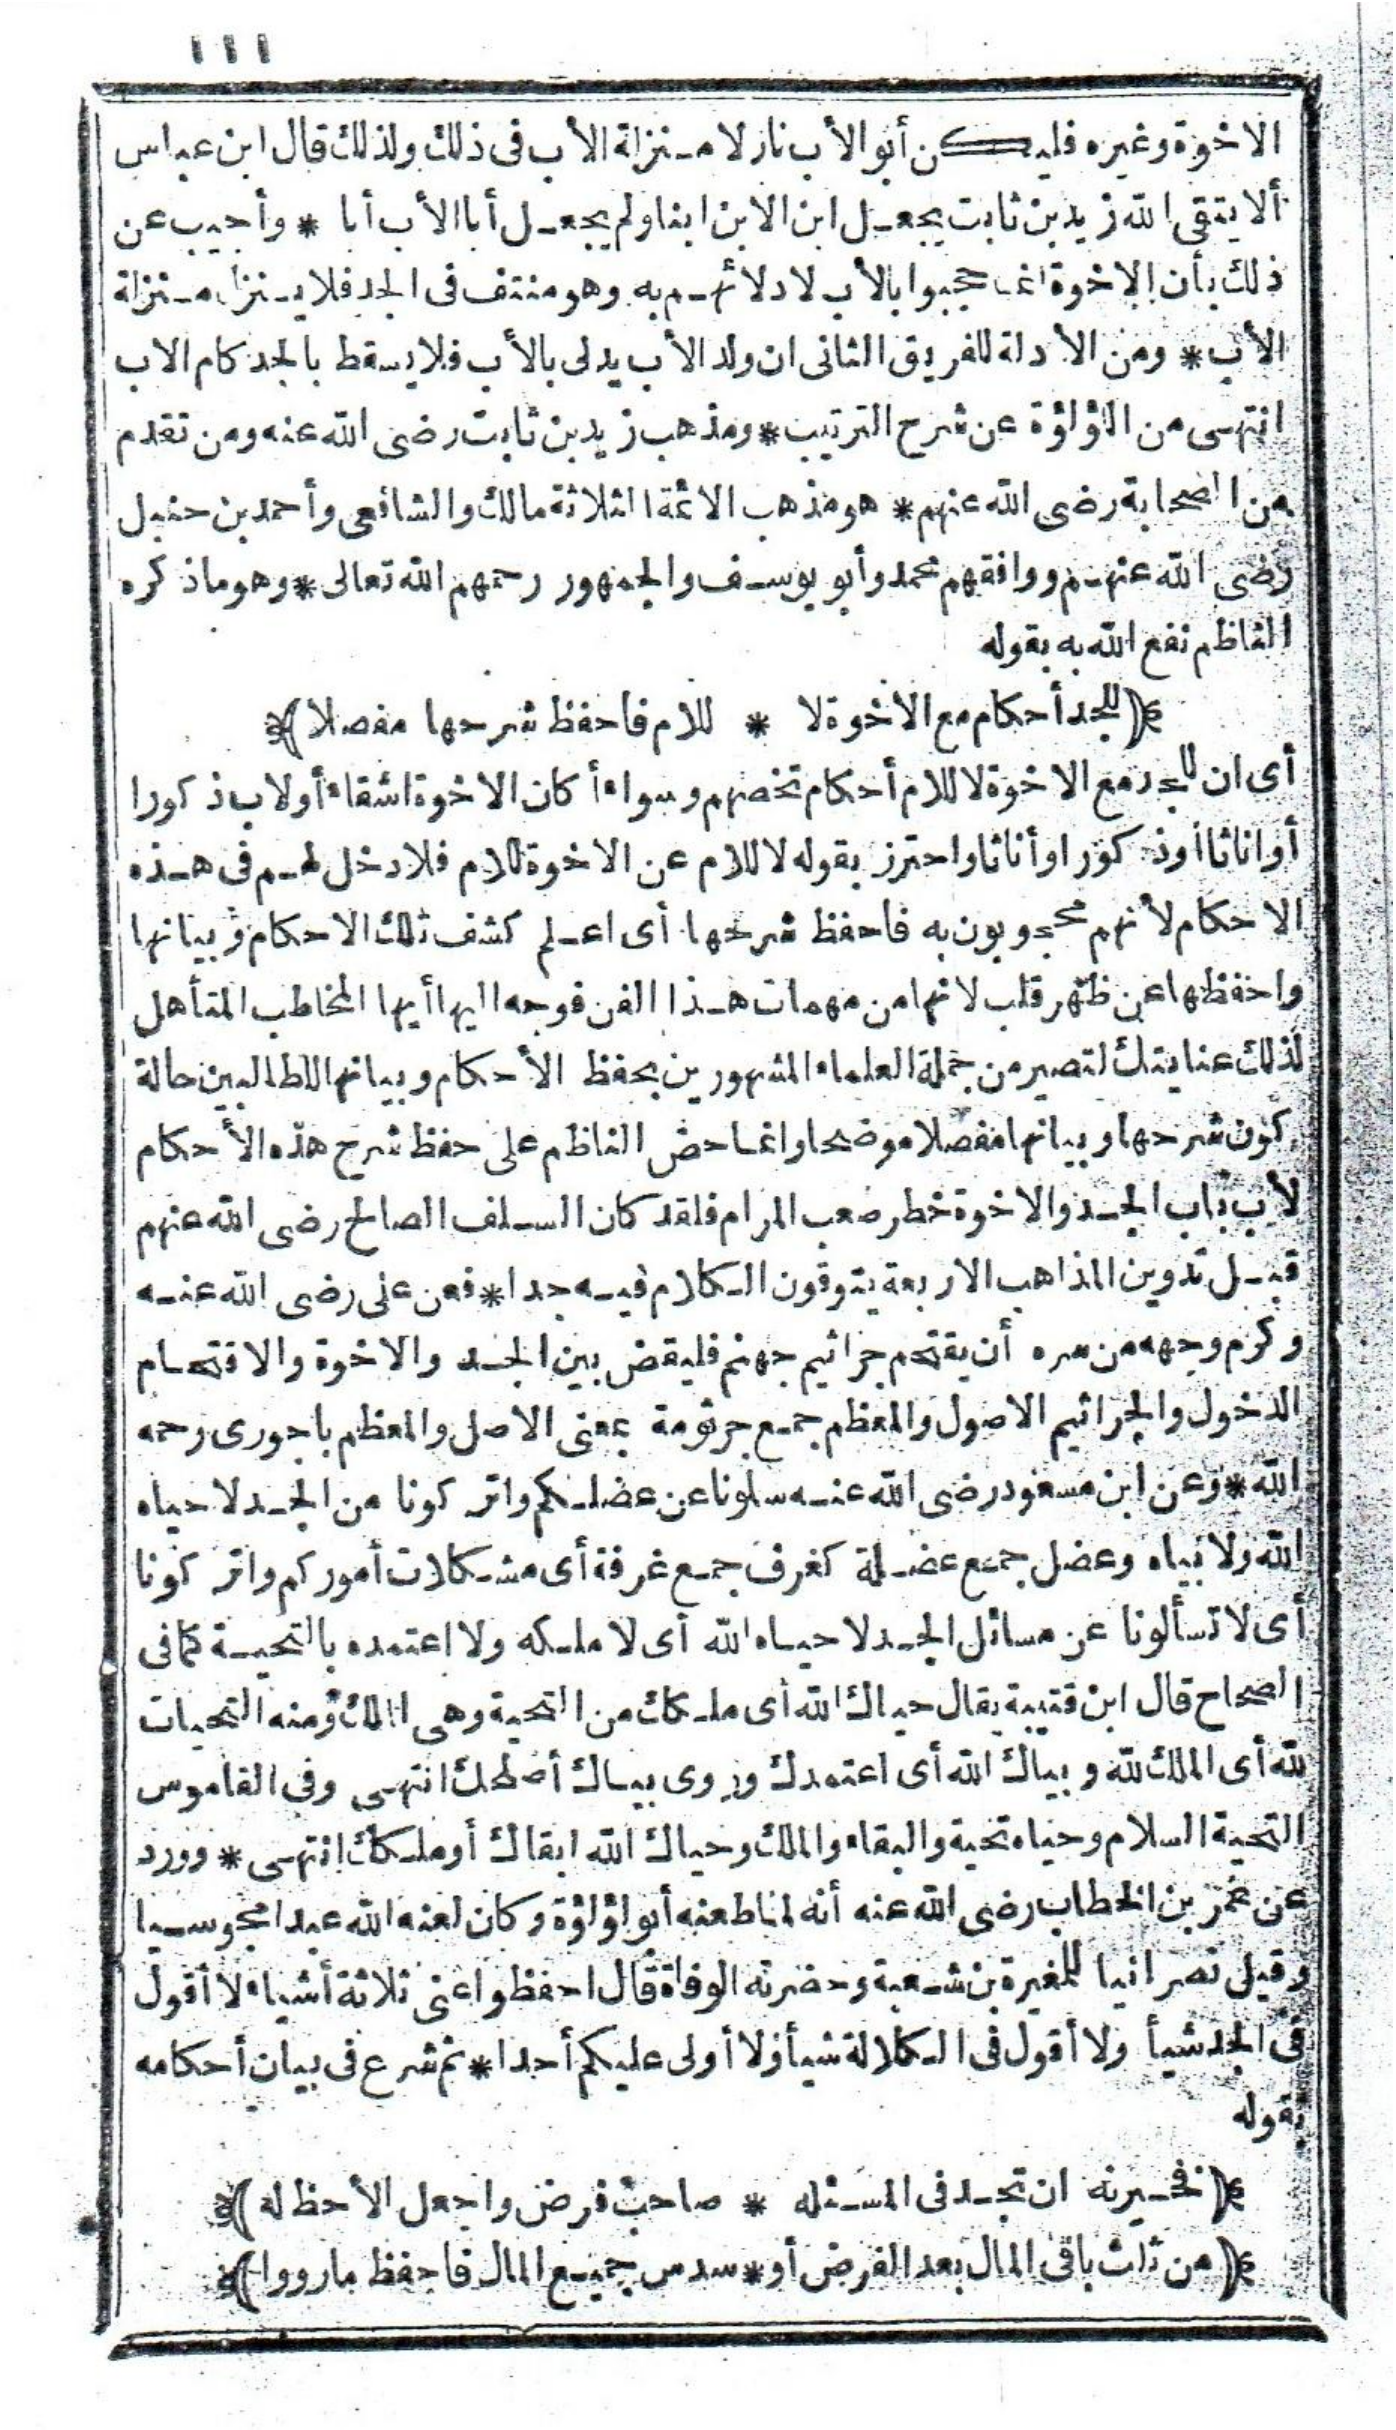 ١١١
الاخوة وغيره فليكن أبو الأب نازلا منزلة الأب فى ذلك ولذلك قال ابن عباس
ألا يتقى الله زيد بن ثابت يجعل ابن الابن ابنا ولم يجعل أبا الأب أبا * وأجيب عن
ذلك بأن الاخوة انما حجبوا بالأب لادلائهم به وهو منتف فى الجد فلا ينزل منزلة
الأب * ومن الأدلة للفريق الثانى ان ولد الأب يدلى بالأب فلا يسقط بالجد كام الاب
انتهى من اللؤلؤة عن شرح الترتيب * ومذهب زيد بن ثابت رضى الله عنه ومن تقدم
من الصحابة رضى الله عنهم * هو مذهب الائمة الثلاثة مالك والشافعى وأحمد بن حنبل
رضى الله عنهم ووافقهم محمد وأبو يوسف والجمهور رحمهم الله تعالى * وهو ماذكره
الناظم نفع الله به بقوله
﴿للجد أحكام مع الاخوة لا * للام فاحفظ شرحها مفصلا﴾
أى ان للجد مع الاخوة لا للام أحكام تخصهم وسواء أكان الاخوة اشقاء أولاب ذكورا
أو اناثا أو ذكورا وأناثا واحترز بقوله لا للام عن الاخوة للام فلا دخل لهم فى هذه
الاحكام لأنهم محجوبون به فاحفظ شرحها أى اعلم كشف تلك الاحكام وبيانها
واحفظها عن ظهر قلب لانها من مهمات هذا الفن فوجه اليها أيها المخاطب المتأهل
لذلك عنايتك لتصير من جملة العلماء المشهورين بحفظ الأحكام وبيانها للطالبين حالة
كون شرحها وبيانها مفصلا موضحا وانما حض الناظم على حفظ شرح هذه الأحكام
لأن باب الجد والاخوة خطر صعب المرام فلقد كان السلف الصالح رضى الله عنهم
قبل تدوين المذاهب الاربعة يتوقون الكلام فيه جدا * فعن على رضى الله عنه
وكرم وجهه من سره أن يقتحم جراثيم جهنم فليقض بين الجد والاخوة والاقتحام
الدخول والجراثيم الاصول والمعظم جمع جرثومة بمعنى الاصل والمعظم باجورى رحمه
الله * وعن ابن مسعود رضى الله عنه سلونا عن عضلكم واتركونا من الجد لا حياه
الله ولا بياه وعضل جمع عضلة كغرف جمع غرفة أى مشكلات أموركم واتركونا
أى لا تسألونا عن مسائل الجد لا حياه الله أى لا ملكه ولا اعتمده بالتحية كما فى
الصحاح قال ابن قتيبة يقال حياك الله أى ملكك من التحية وهى الملك ومنه التحيات
لله أى الملك لله وبياك الله أى اعتمدك وروى بياك أضحكك انتهى وفى القاموس
التحية السلام وحياه تحية والبقاء والملك وحياك الله ابقاك أو ملكك انتهى * وورد
عن عمر بن الخطاب رضى الله عنه أنه لما طعنه أبو لؤلؤة وكان لعنه الله عبدا مجوسيا
وقيل نصرانيا للمغيرة بن شعبة وحضرته الوفاة قال احفظوا عنى ثلاثة أشياء لا أقول
فى الجد شيأ ولا أقول فى الكلالة شيأ ولا أولى عليكم أحدا * ثم شرع فى بيان أحكامه
بقوله
﴿فخيرنه ان تجد فى المسئله * صاحب فرض واجعل الأحظ له﴾
﴿من ثلث باقى المال بعد الفرض أو * سدس جميع المال فاحفظ مارووا﴾